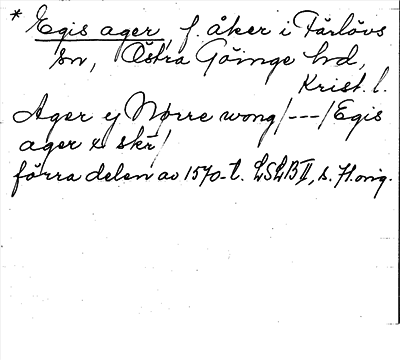 * Egis ager, f. åker i Färlövs
sn, Östra Göinge hd,
Krist. l.
Ager ej Nørre wong/---/Egis
ager x skr/
förra delen av 1570-t. LSLB II, s. 71. orig.